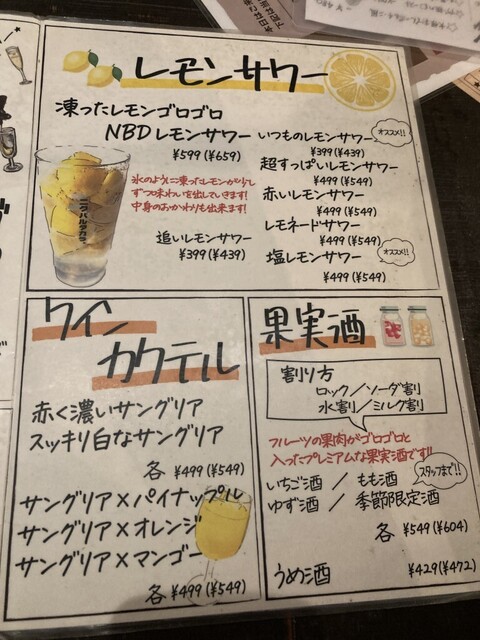 レモンサワー
凍ったレモンゴロゴロ
NBDレモンサワー
¥599(¥659)
氷のように凍ったレモンが少し
ずつ味わいを出していきます!
中身のおかわりも出来ます!
ニク・バルダカラ。
追いレモンサワー
¥399(¥439)
いつものレモンサワー
オススメ!!
¥399(¥439)
超すっぱいレモンサワー
¥499(¥549)
赤いレモンサワー
¥499(¥549)
レモネードサワー
¥499(¥549)
塩レモンサワー
オススメ!!
¥499(¥549)
ワイン
カクテル
赤く濃いサングリア
スッキリ白なサングリア
各 ¥499(¥549)
サングリア×パイナップル
サングリア×オレンジ
サングリア×マンゴー
各 ¥499(¥549)
果実酒
割り方
ロック/ソーダ割
水割/ミルク割
フルーツの果肉がゴロゴロと
入ったプレミアムな果実酒です!!
スタッフまで!!
いちご酒 / もも酒
ゆず酒 / 季節限定酒
各 ¥549(¥604)
うめ酒 ¥429(¥472)